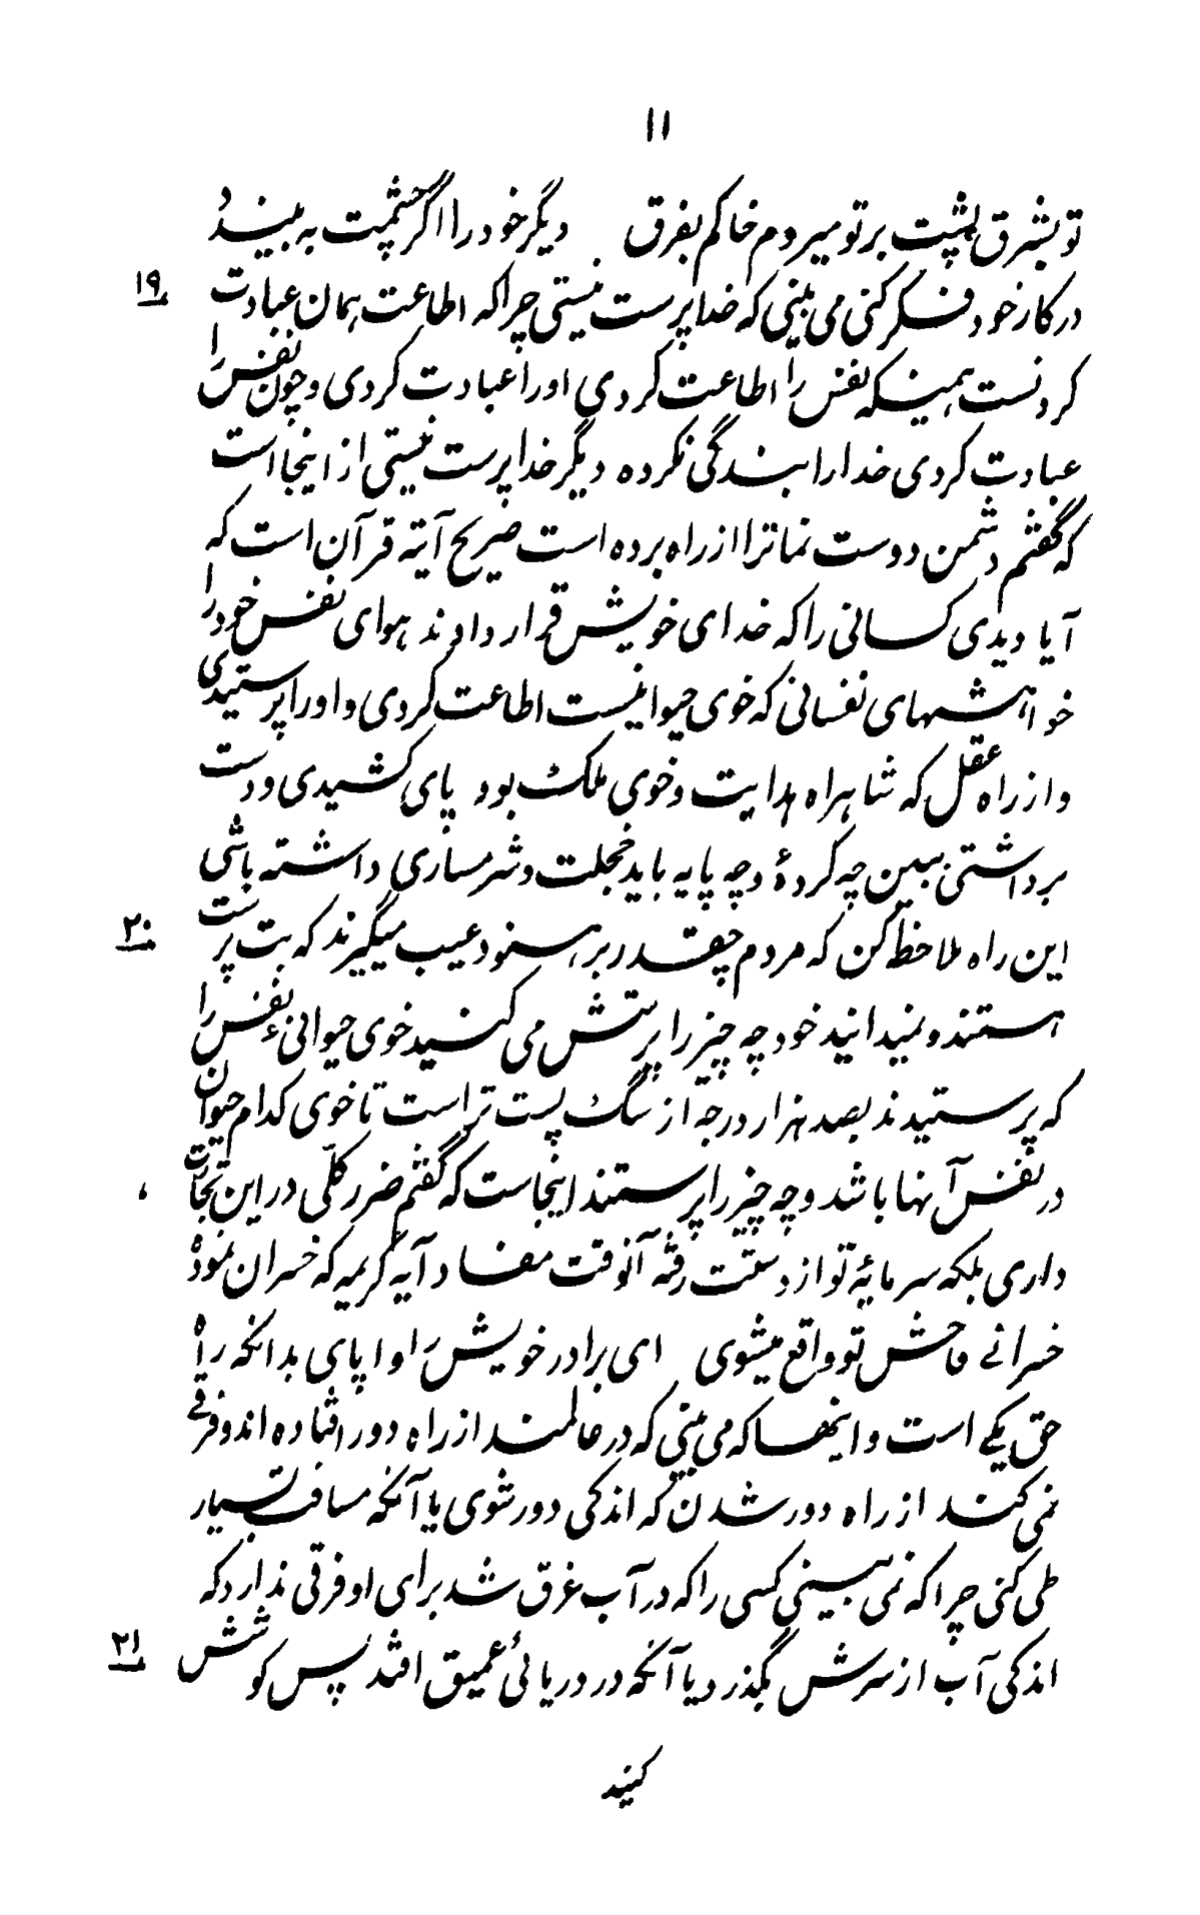 ۱۱
تو بشرق پشت بر تو میروم خاکم بفرق دیگر خود را اگر چشمت به بیند و
۱۹
در کار خود فکر کنی می بینی که خدا پرست نیستی چراکه اطاعت همان عبادت
کردنست همینکه نفس را اطاعت کردی او را عبادت کردی و چون نفس را
عبادت کردی خدا را بندگی نکرده دیگر خدا پرست نیستی از اینجا است
که گفتم دشمن دوست نما ترا از راه برده است صریح آیه قرآن است که
آیا دیدی کسانی را که خدای خویش قرار دادند هوای نفس خود را
خواهشهای نفسانی که خوی حیوانیست اطاعت کردی و او را پرستیدی
و از راه عقل که شاهراه هدایت و خوی ملک بود پای کشیدی و دست
برداشتی ببین چه کردهٔ و چه پایه باید خجلت و شرمساری داشته باشی
۲۰
این راه ملاحظه کن که مردم چقدر بر هنود عیب میگیرند که بت پرست
هستند و نمیدانید خود چه چیز را پرستش می کنید خوی حیوانی نفس را
که پرستیدند بصد هزار درجه از سگ پست تر است تا خوی کدام حیوان
در نفس آنها باشد و چه چیز را پرستند اینجاست که گفتم ضرر کلّی در این تجارت
داری بلکه سرمایهٔ تو از دستت رفته آنوقت مفاد آیه کریمه که خسران نموده
خسرانی فاحش تو واقع میشوی ای برادر خویش را واپای بدانکه راه
حق یکی است و اینها که می بینی که در عالمند از راه دور افتاده اند و فرقی
نمی کند از راه دور شدن که اندکی دور شوی یا آنکه مسافت بسیار
طی کنی چرا که نمی بینی کسی را که در آب غرق شد برای او فرقی ندارد که
۲۱
اندکی آب از سرش بگذرد یا آنکه در دریائی عمیق افتد پس کوشش
کنید